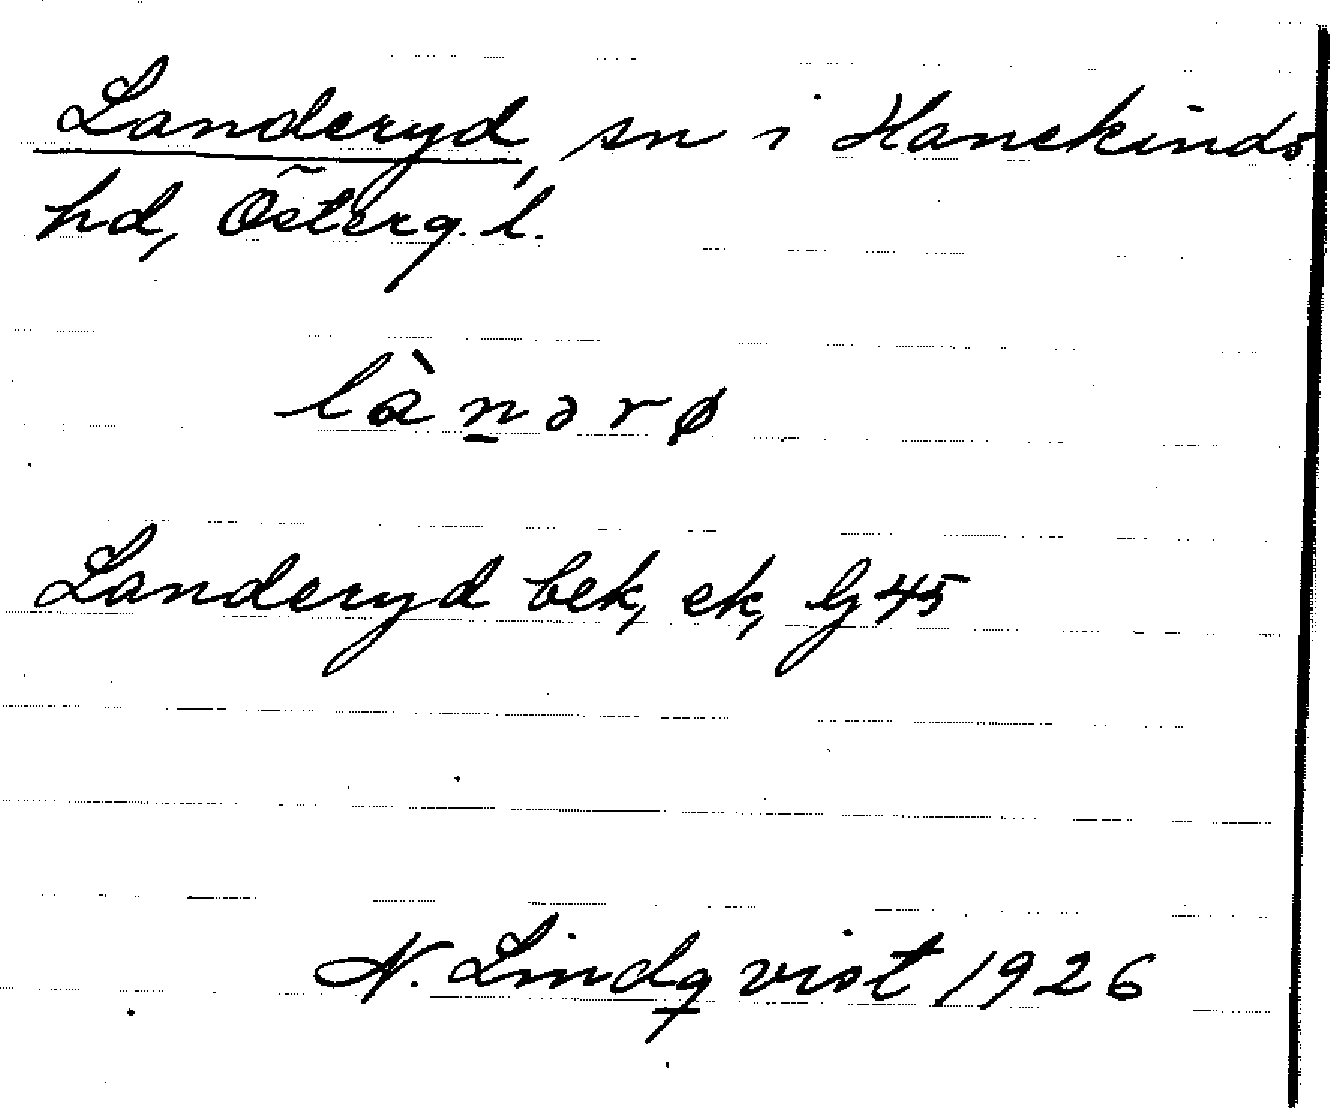 Landeryd, sn i Hanekinds
hd, Österg. l.
lànərø
Landeryd bek, ek, lg 45
N. Lindqvist 1926